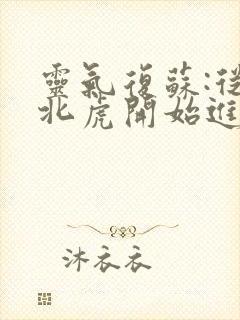 靈氣復蘇:從
北虎開始進
沐衣衣